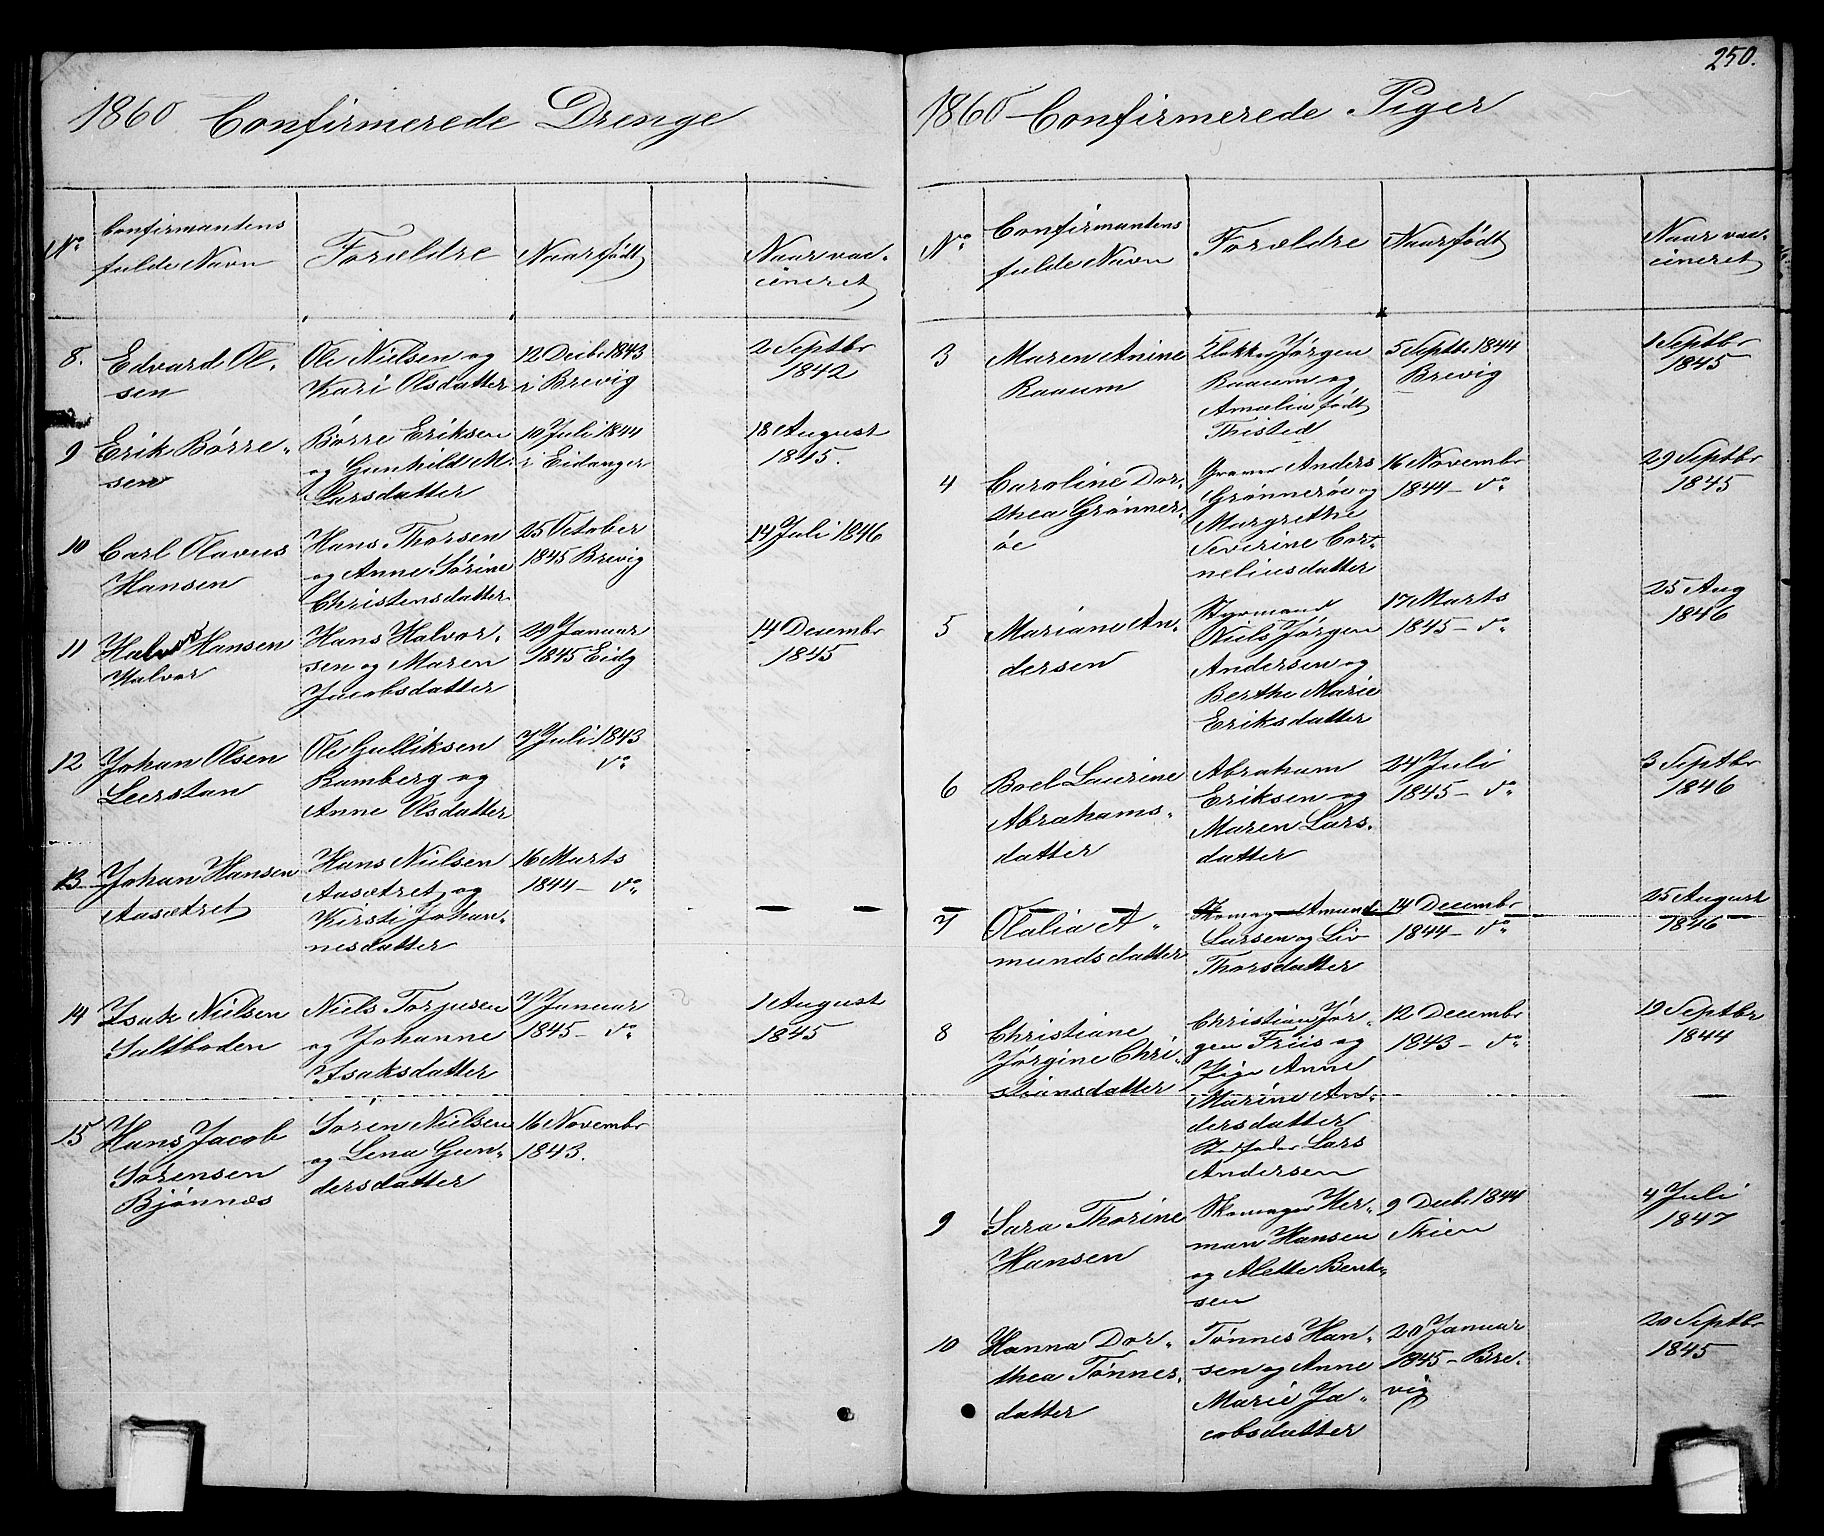 1860 Confirmerede Drenge
No
Confirmantens
fulde Navn
Forældre
Naar født
Naar vac-
cineret
8.
Edvard Ol-
sen
Ole Nielsen og
Kari Olsdatter
12 Decbr 1843
i Brevig
2 Septbr
1842
9
Erik Börre-
sen
Börre Eriksen
og Gunhild M.
Larsdatter
10 Juli 1844
i Eidanger
18 August
1845.
10
Carl Olavus
Hansen
Hans Thorsen
og Anne Sörine
Christensdatter
25 October
1845 Brevig
14 Juli 1846
11
Halvor Hansen
Halvor
Hans Halvor-
sen og Maren
Jacobsdatter
29 Januar
1845 Eidg
14 Decembr
1845
12
Johan Olsen
Leerstan
Ole Gulliksen
Ramberg og
Anne Olsdatter
7 Juli 1843
do
13
Johan Hansen
Aasætret
Hans Nielsen
Aasætret og
Kirsti Johan-
nesdatter
16 Marts
1844 - do
14
Isak Nielsen
Saltboden
Niels Torjusen
og Johanne
Isaksdatter
7 Januar
1845 - do
1 August
1845
15
Hans Jacob
Sörensen
Bjönnæs
Sören Nielsen
og Lena Gun-
dersdatter
16 Novembr
1843.
250.
1860 Confirmerede Piger
No
Confirmantens
fulde Navn
Forældre
Naar født
Naar vac-
cineret
3
Maren Anine
Raaum
Jörgen
Raaum og
Amalia födt
Thisted
5 Septb. 1844
Brevig
1 Septbr
1845
4
Caroline Dor-
thea Grönner-
öe
Anders
Grönneröe og
Margrethe
Severine Cor-
neliusdatter
16 Novembr
1844 - do
29 Septbr
1845
5
Mariane An-
dersen
Styrmand
Niels Jörgen
Andersen og
Berthe Marie
Eriksdatter
17 Marts
1845 - do
25 Aug
1846
6
Boel Laurine
Abrahams-
datter
Abraham
Eriksen og
Maren Lars-
datter
24 Juli
1845 - do
3 Septbr
1846
7
Olalia A-
mundsdatter
Skomag Amund
Larsen og Liv
Thorsdatter
14 Decembr
1844 - do
25 August
1846
8
Christiane
Jörgine Chri-
stiansdatter
Christian Jör-
gen Friis og
Pige Anne
Marine An-
dersdatter
Stedfader Lars
Andersen
12 Decembr
1843 - do
19 Septbr
1844
9
Sara Thorine
Hansen
Skomager Her-
man Hansen
og Alette Bent-
sen
9 Decbr 1844
Skien
4 Juli
1847
10
Hanna Dor-
thea Tönnes-
datter
Tönnes Han-
sen og Anne
Marie Ja-
cobsdatter
20 Januar
1845 - Bre-
vig
20 Septbr
1845